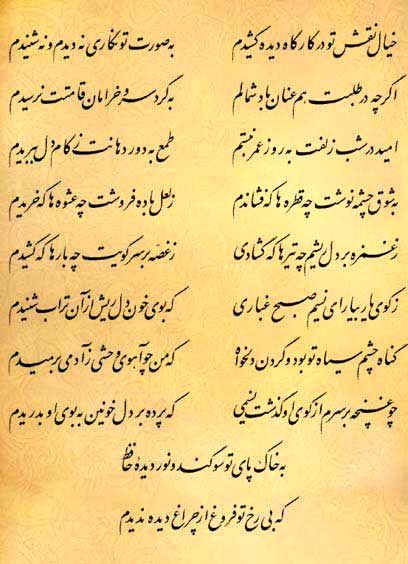 خیال نقش تو در کارگاه دیده کشیدم به صورت تو نگاری نه دیدم و نه شنیدم
اگرچه در طلبت هم عنان باد شمالم به گرد سرو خرامان قامتت نرسیدم
امید در شب زلفت به روز عمر نبستم طمع به دور دهانت ز کام دل ببریدم
به شوق چشمه نوشت چه قطره ها که فشاندم ز لعل باده فروشت چه عشوه ها که خریدم
ز غمزه بر دل ریشم چه تیرها که گشادی ز غصه بر سر کویت چه بارها که کشیدم
ز کوی یار بیار ای نسیم صبح غباری که بوی خون دل ریش از آن تراب شنیدم
گناه چشم سیاه تو بود و گردن دلخواه که من چو آهوی وحشی ز آدمی برمیدم
چو غنچه بر سرم از کوی او گذشت نسیمی که پرده بر دل خونین به بوی او بدریدم
به خاک پای تو سوگند و نور دیدهٔ حافظ
که بی رخ تو فروغ از چراغ دیده ندیدم